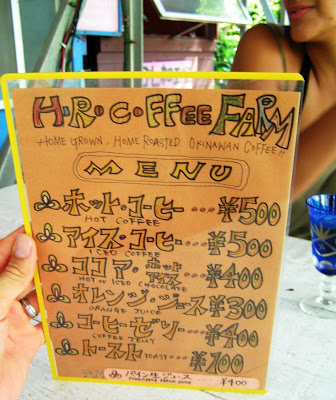 H·R·O·COFFEE FARM
HOME GROWN, HOME ROASTED OKINAWAN COFFEE!!
MENU
ホット・コーヒー ・・・¥500
HOT COFFEE
アイス・コーヒー ・・・¥500
ICED COFFEE
ココア・ホットアイス ・・・¥400
HOT OR ICED CHOCOLATE
オレンジ・ジュース ¥300
ORANGE JUICE
コーヒー・ゼリー ・・・¥400
COFFEE JELLY
トースト TOAST ・・・¥100
パイン生ジュース ・・・¥400
PINEAPPLE FRESH JUICE